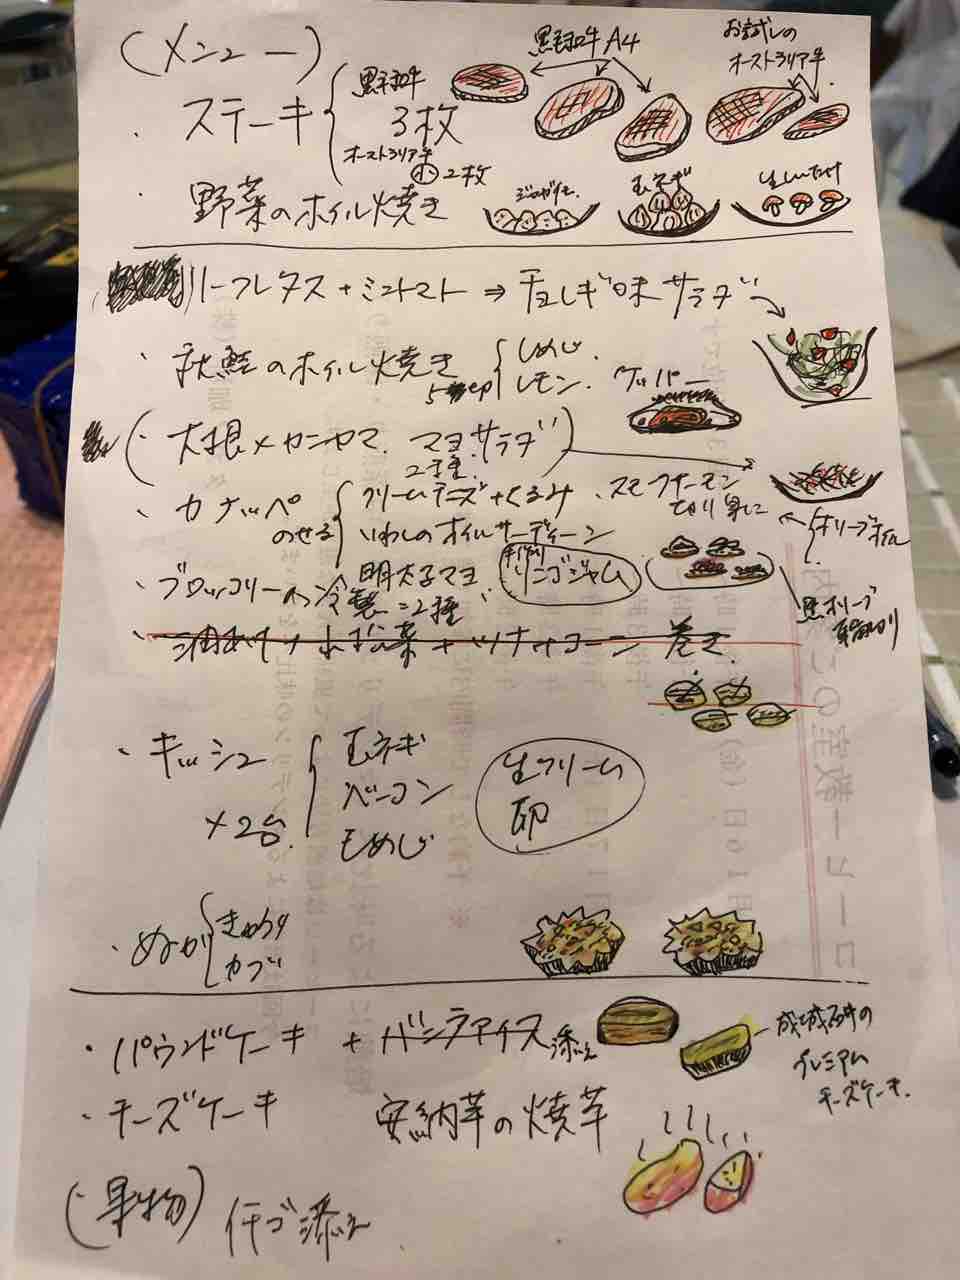 (メニュー)
黒毛和牛A4
お試しの
オーストラリア牛
・ステーキ
黒毛和牛
3枚
オーストラリア牛
小 2枚
・野菜のホイル焼き
ジャガイモ
玉ネギ
生しいたけ
リーフレタス+ミニトマト⇒チョレギ味サラダ
・秋鮭のホイル焼き
しめじ
レモン
ケッパー
(・大根×カニカマ マヨサラダ)
2種
・カナッペ
のせる
クリームチーズ+くるみ、スモークサーモン
切り身に
いわしのオイルサーディン
オリーブオイル
手作り
リンゴジャム
・ブロッコリーの冷製
明太子マヨ
2種
黒オリーブ
・油あげ
+ツナ+コーン 巻き
・キッシュ
×2台
玉ネギ
ベーコン
しめじ
生クリーム
卵
・ぬか
きゅうり
カブ
・パウンドケーキ + バニラアイス添え
成城石井の
プレミアム
チーズケーキ
・チーズケーキ
安納芋の焼芋
(・果物)
イチゴ添え